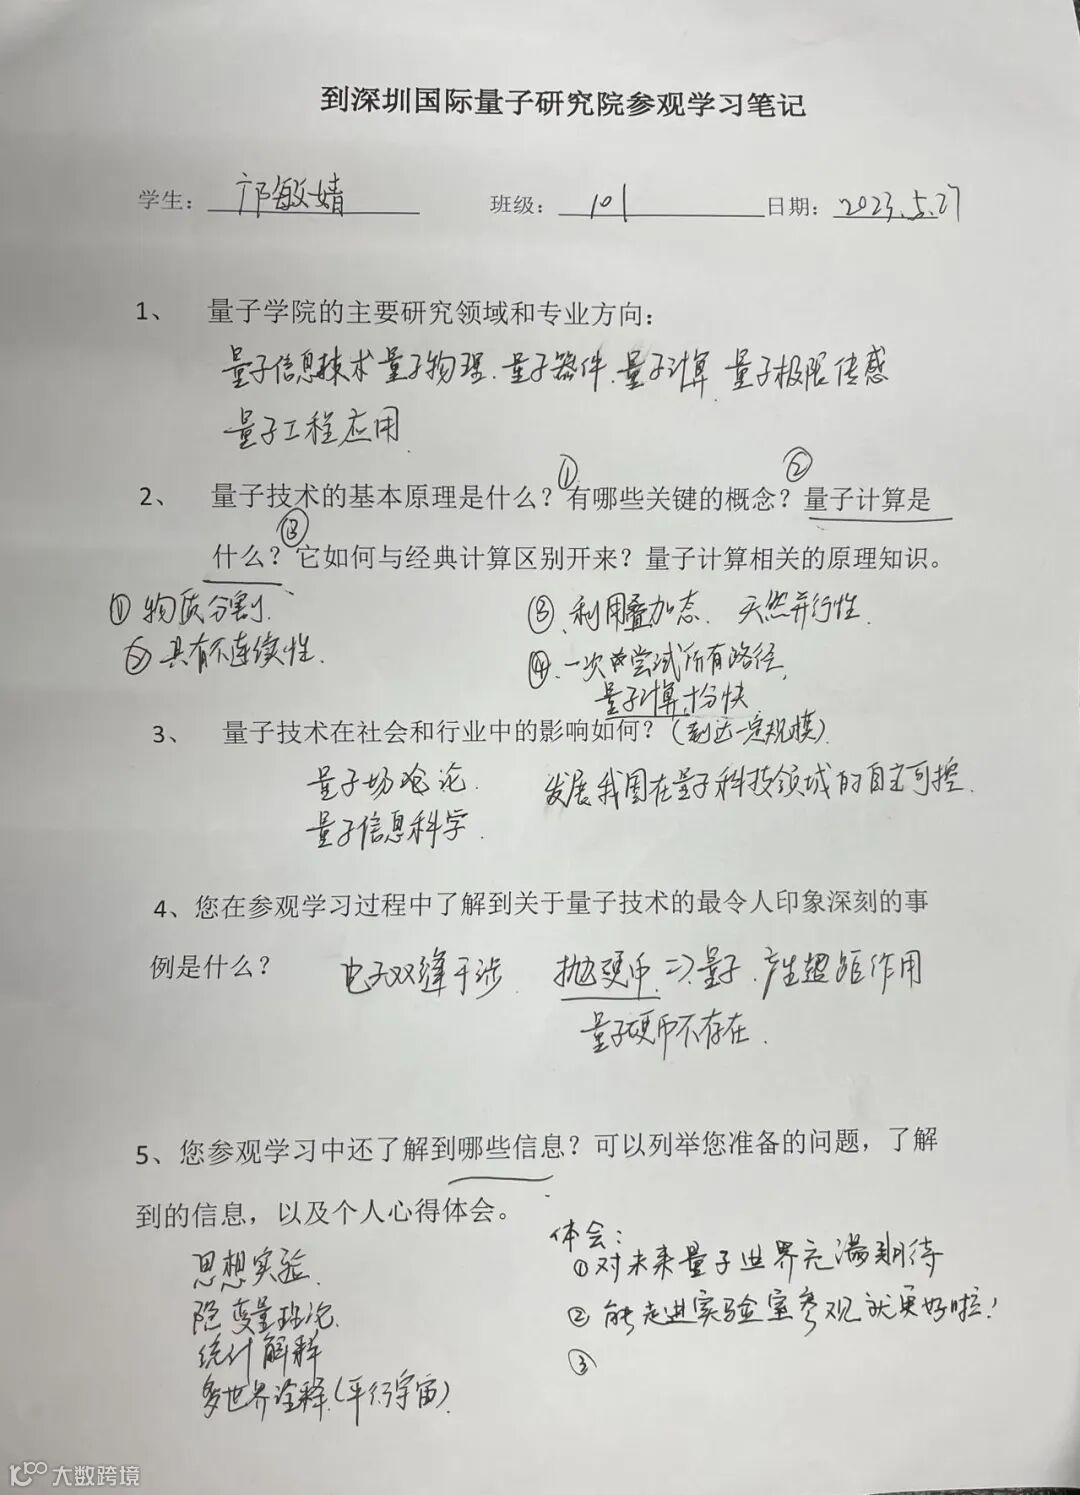 到深圳国际量子研究院参观学习笔记
学生：邝敏婧 班级：101 日期：2023.5.27
1、 量子学院的主要研究领域和专业方向：
量子信息技术 量子物理、量子器件、量子计算、量子极限传感
量子工程应用
① ②
2、 量子技术的基本原理是什么？有哪些关键的概念？量子计算是
③
什么？它如何与经典计算区别开来？量子计算相关的原理知识。
① 物质分割. ③、利用叠加态. 天然并行性.
② 具有不连续性. ④、一次尝试所有路径,
量子计算十分快
3、 量子技术在社会和行业中的影响如何？(到达一定规模).
量子场论. 发展我国在量子科技领域的自主可控.
量子信息科学.
4、您在参观学习过程中了解到关于量子技术的最令人印象深刻的事
例是什么？ 电子双缝干涉. 抛硬币. => 量子. 产生超距作用
量子硬币不存在.
5、您参观学习中还了解到哪些信息？可以列举您准备的问题，了解
到的信息，以及个人心得体会。
体会：
思想实验. ①对未来量子世界充满期待
隐变量理论. ② 能走进实验室参观就更好啦!
统计解释 ③
多世界诠释.(平行宇宙).
大数跨境